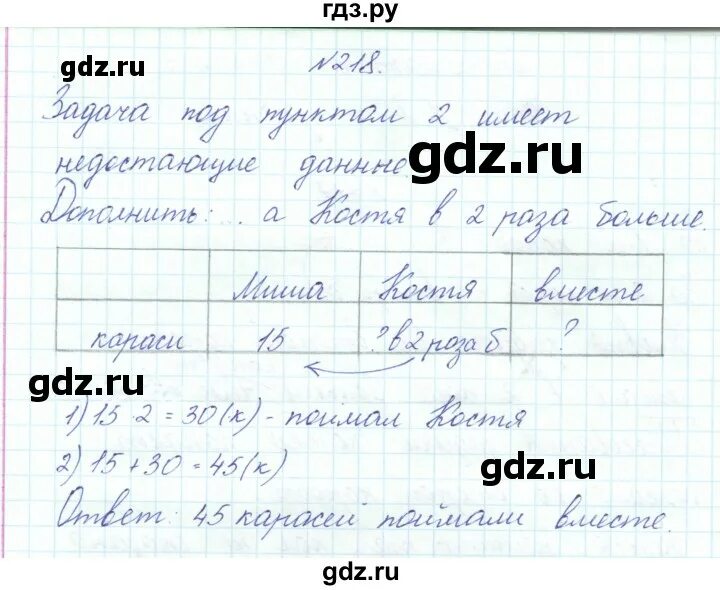 гдз.ру
№218.
gdz.ru
Задача под пунктом 2 имеет
недостающие данные.
gdz.ru
Дополнить: ... а Костя в 2 раза больше.
Миша Костя вместе
караси 15 ?в 2 роза б ?
gdz.ru
1) 15 2 = 30 (к) - поймал Костя
2) 15 + 30 = 45 (к)
gdz.ru
Ответ: 45 карасей поймали вместе.
gdz.ru